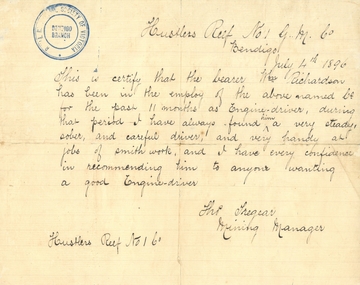 Hustlers Reef No. 1 G. M. Co
Bendigo
July 4th 1890
This is certify that the bearer Wm Richardson
has been in the employ of the above named Co
for the past 11 months as Engine-driver, during
that period I have always found him a very steady,
sober, and careful driver, and very handy at
jobs of smith work, and I have every confidence
in recommending him to anyone wanting
a good Engine-driver
Thos Tregear
Mining Manager
Hustlers Reef No 1 Co
BENDIGO
BRANCH